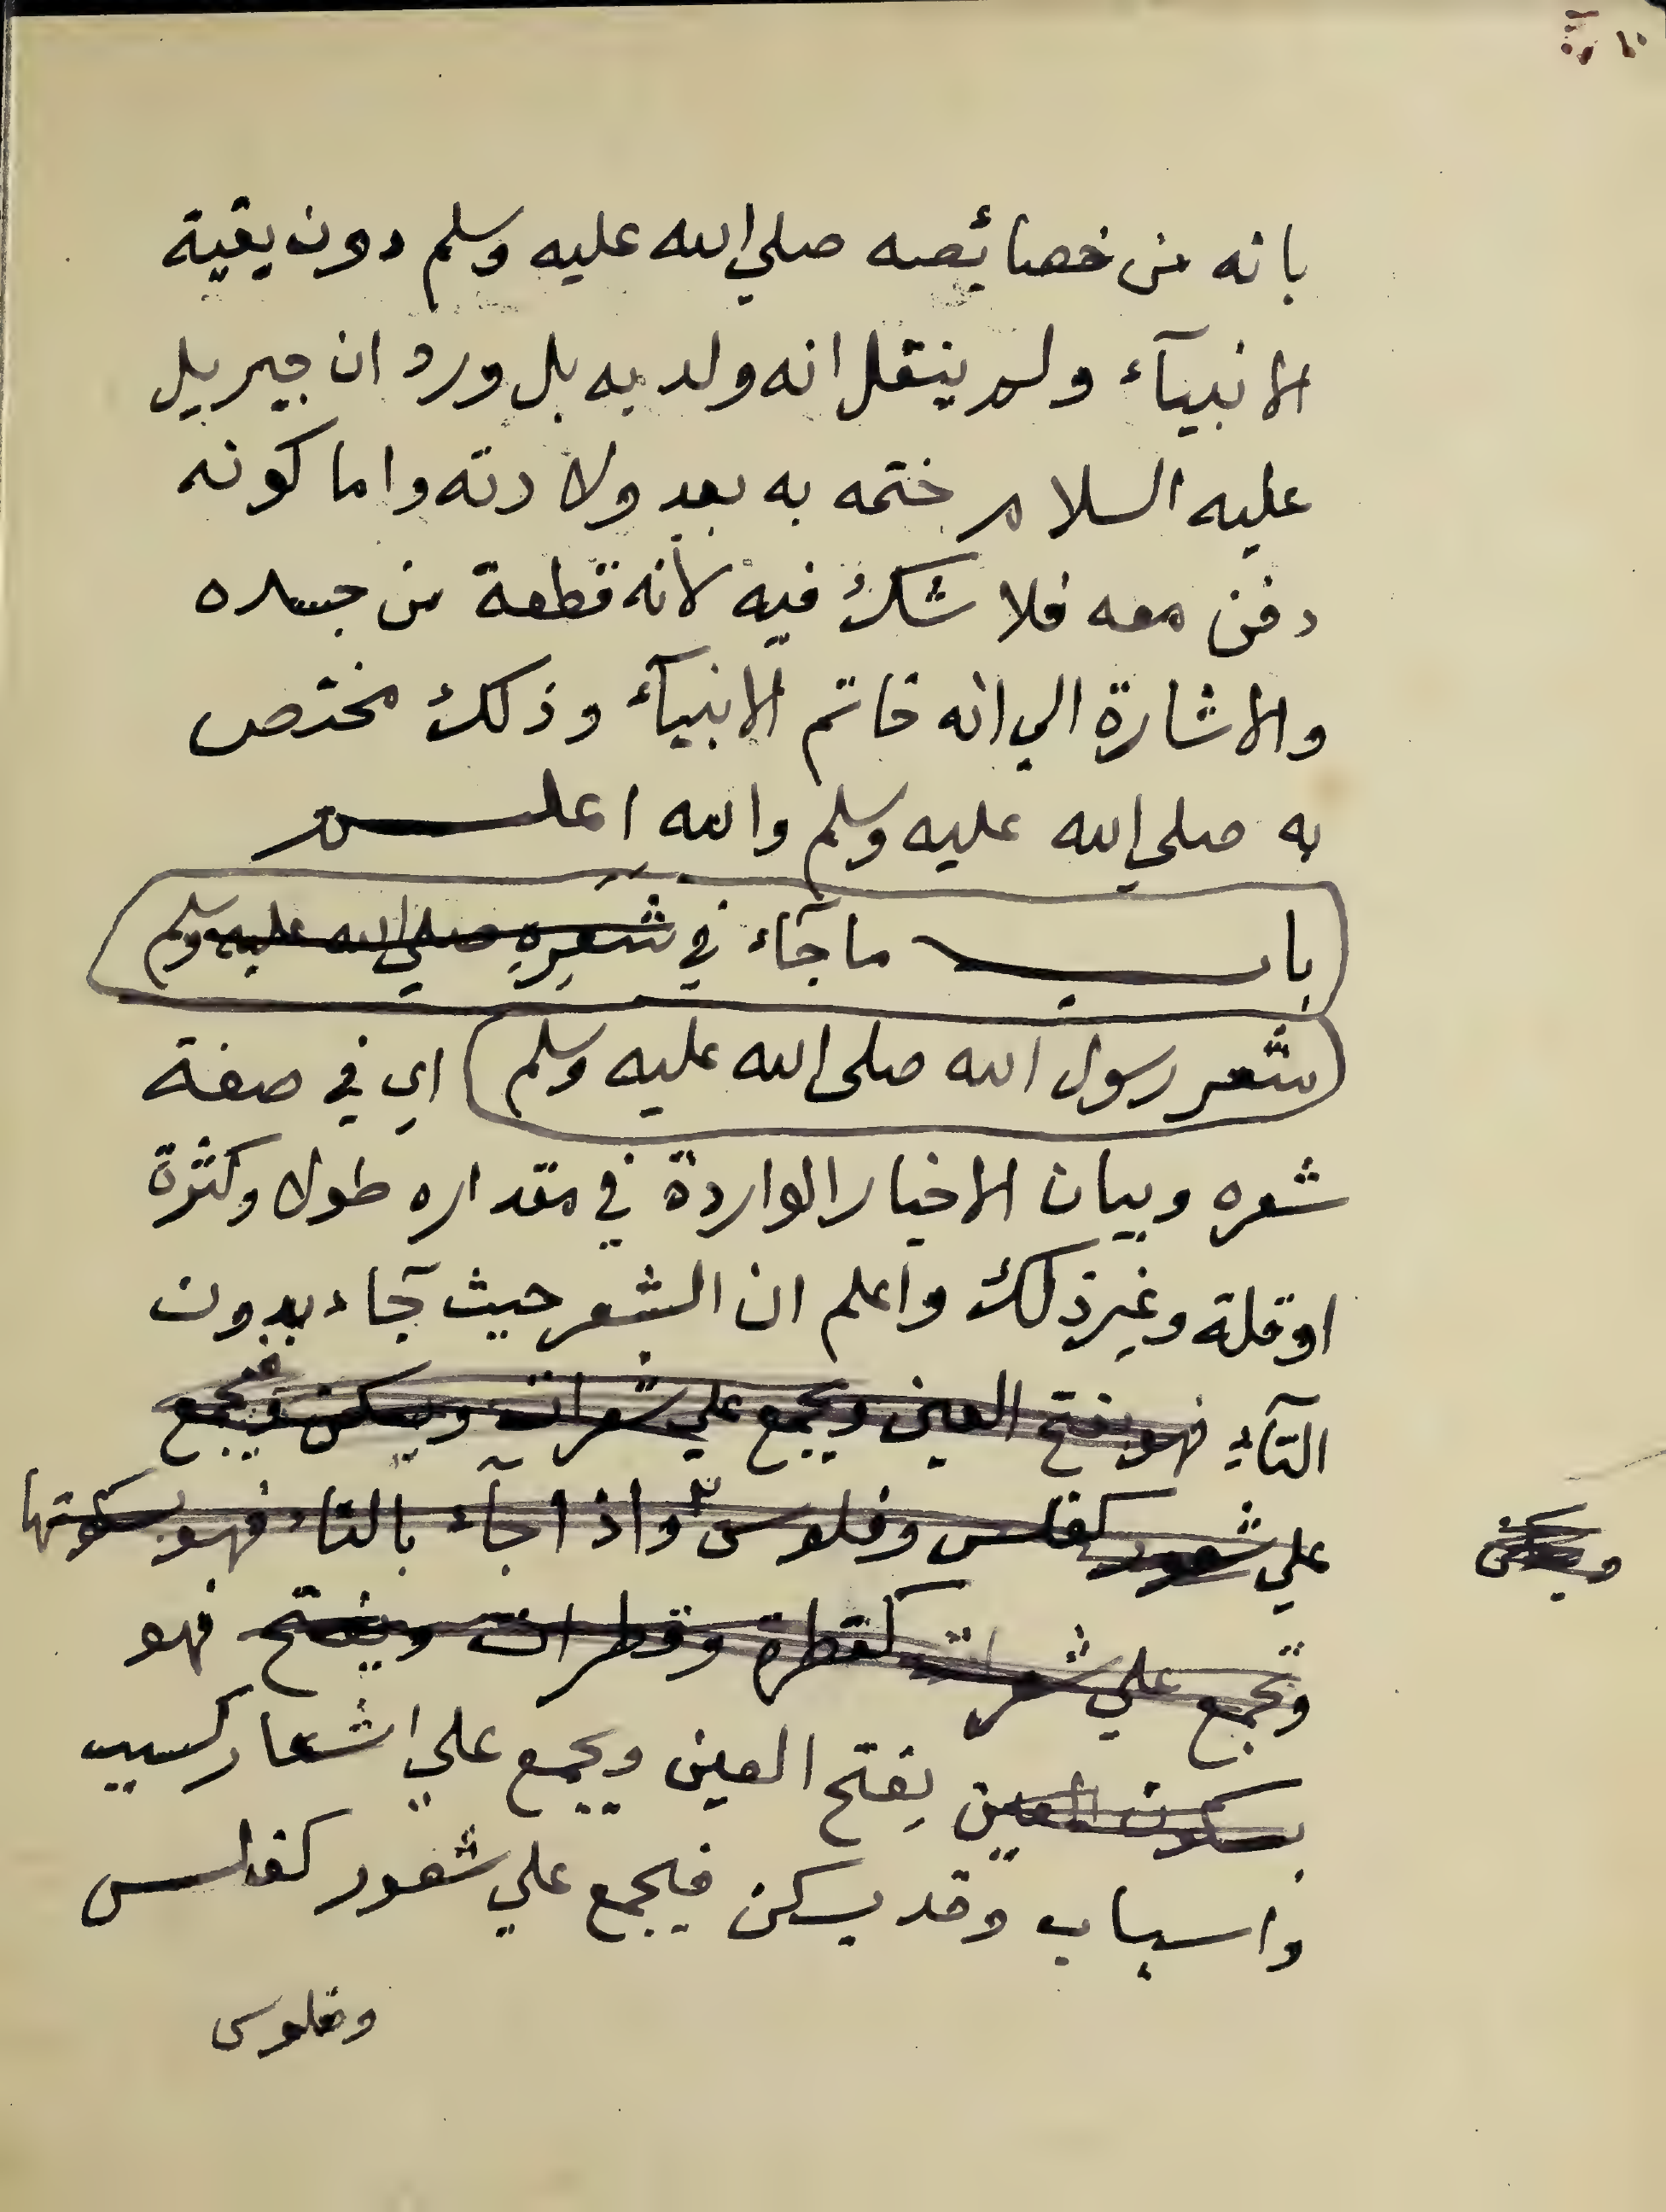 بانه من خصائصه صلي الله عليه وسلم دون بقية
الانبيآء ولم ينقل انه ولد به بل ورد ان جبريل
عليه السلام ختمه به بعد ولادته واما كونه
دفن معه فلا شك فيه لانه قطعة من جسده
والاشارة الي انه خاتم الانبيآء وذلك مختص
به صلي الله عليه وسلم والله اعلم
باب ما جآء في شَعرِهِ صلي الله عليه وسلم
شعر رسول الله صلى الله عليه وسلم اي في صفة
شعره وبيان الاخبار الواردة في مقداره طول وكثرة
او قلة وغير ذلك واعلم ان الشعر حيث جآء بدون
التآءِ فهو بفتح العين ويجمع علي شعرات ويسكن فيجمع
علي شعور كفلس وفلوس واذا جآء بالتاء فهو بسكونها
ويسكن
وتجمع علي شعرات كقطرة وقطرات ويفتح فهو
بسكون العين بفتح العين ويجمع علي اشعار كسبب
واسباب وقد يسكن فيجمع علي شعور كفلس
وفلوس